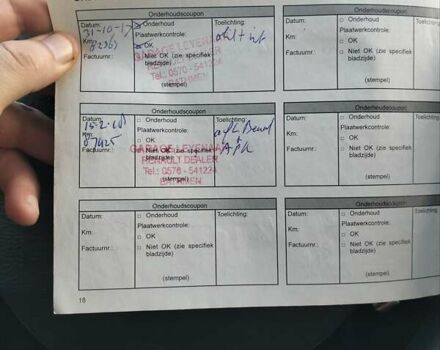 Onderhoudscoupon
Datum: □ Onderhoud Toelichting:
31-10-17 Plaatwerkcontrole:
Km: □ OK
Factuurnr.: □ Niet OK (zie specifiek
bladzijde)
(stempel)
GARAGE LEYENAAR
RENAULT DEALER
Tel.: 0570 - 541224
BATHMEN
Onderhoudscoupon
Datum: □ Onderhoud Toelichting:
Plaatwerkcontrole:
Km: □ OK
Factuurnr.: □ Niet OK (zie specifiek
bladzijde)
(stempel)
APK
GARAGE LEYENAAR
RENAULT DEALER
Tel.: 0570 - 541224
BATHMEN
Onderhoudscoupon
Datum: □ Onderhoud Toelichting:
Plaatwerkcontrole:
Km: □ OK
Factuurnr.: □ Niet OK (zie specifiek
bladzijde)
(stempel)
16
Onderhoudscoupon
Datum: □ Onderhoud
Plaatwerkcontrole:
Km: □ OK
Factuurnr.: □ Niet OK (zie specifiek
bladzijde)
(stempel)
Onderhoudscoupon
Datum: □ Onderhoud
Plaatwerkcontrole:
Km: □ OK
Factuurnr.: □ Niet OK (zie specifiek
bladzijde)
(stempel)
Onderhoudscoupon
Datum: □ Onderhoud
Plaatwerkcontrole:
Km: □ OK
Factuurnr.: □ Niet OK (zie specifiek
bladzijde)
(stempel)